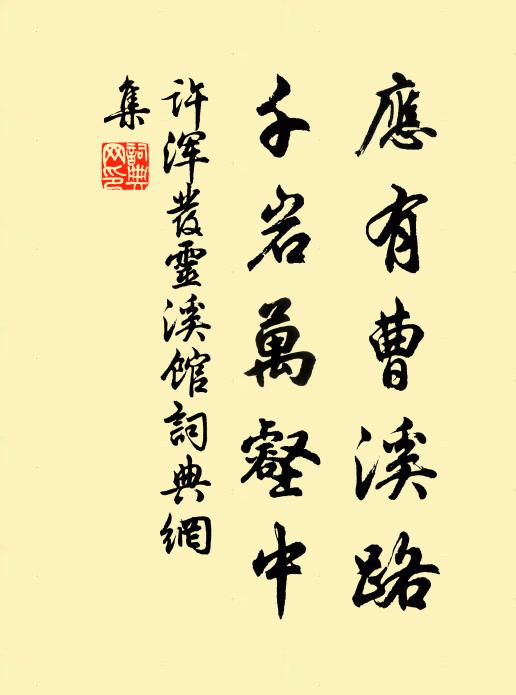 應有曹溪路
千岩萬壑中
許渾發靈溪館詞典網
集
詞典
网印